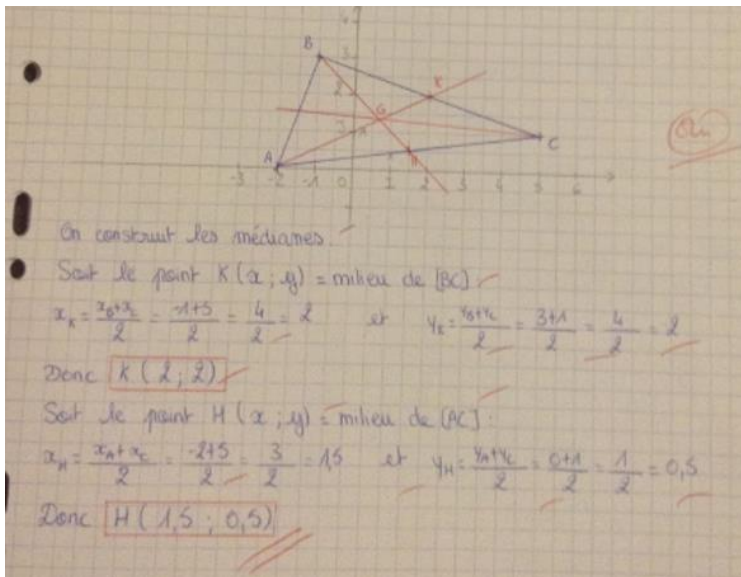 4
B
3
K
2
G
C
A
H
-3 -2 -1 0 1 2 3 4 5 6
On construit les médianes.
Soit le point K(x ; y) = milieu de [BC].
x_K = (x_B + x_C)/2 = (-1+5)/2 = 4/2 = 2 et y_K = (y_B + y_C)/2 = (3+1)/2 = 4/2 = 2
Donc K ( 2 ; 2 )
Soit le point H (x ; y) = milieu de [AC].
x_H = (x_A + x_C)/2 = (-2+5)/2 = 3/2 = 1,5 et y_H = (y_A + y_C)/2 = (0+1)/2 = 1/2 = 0,5
Donc H ( 1,5 ; 0,5)